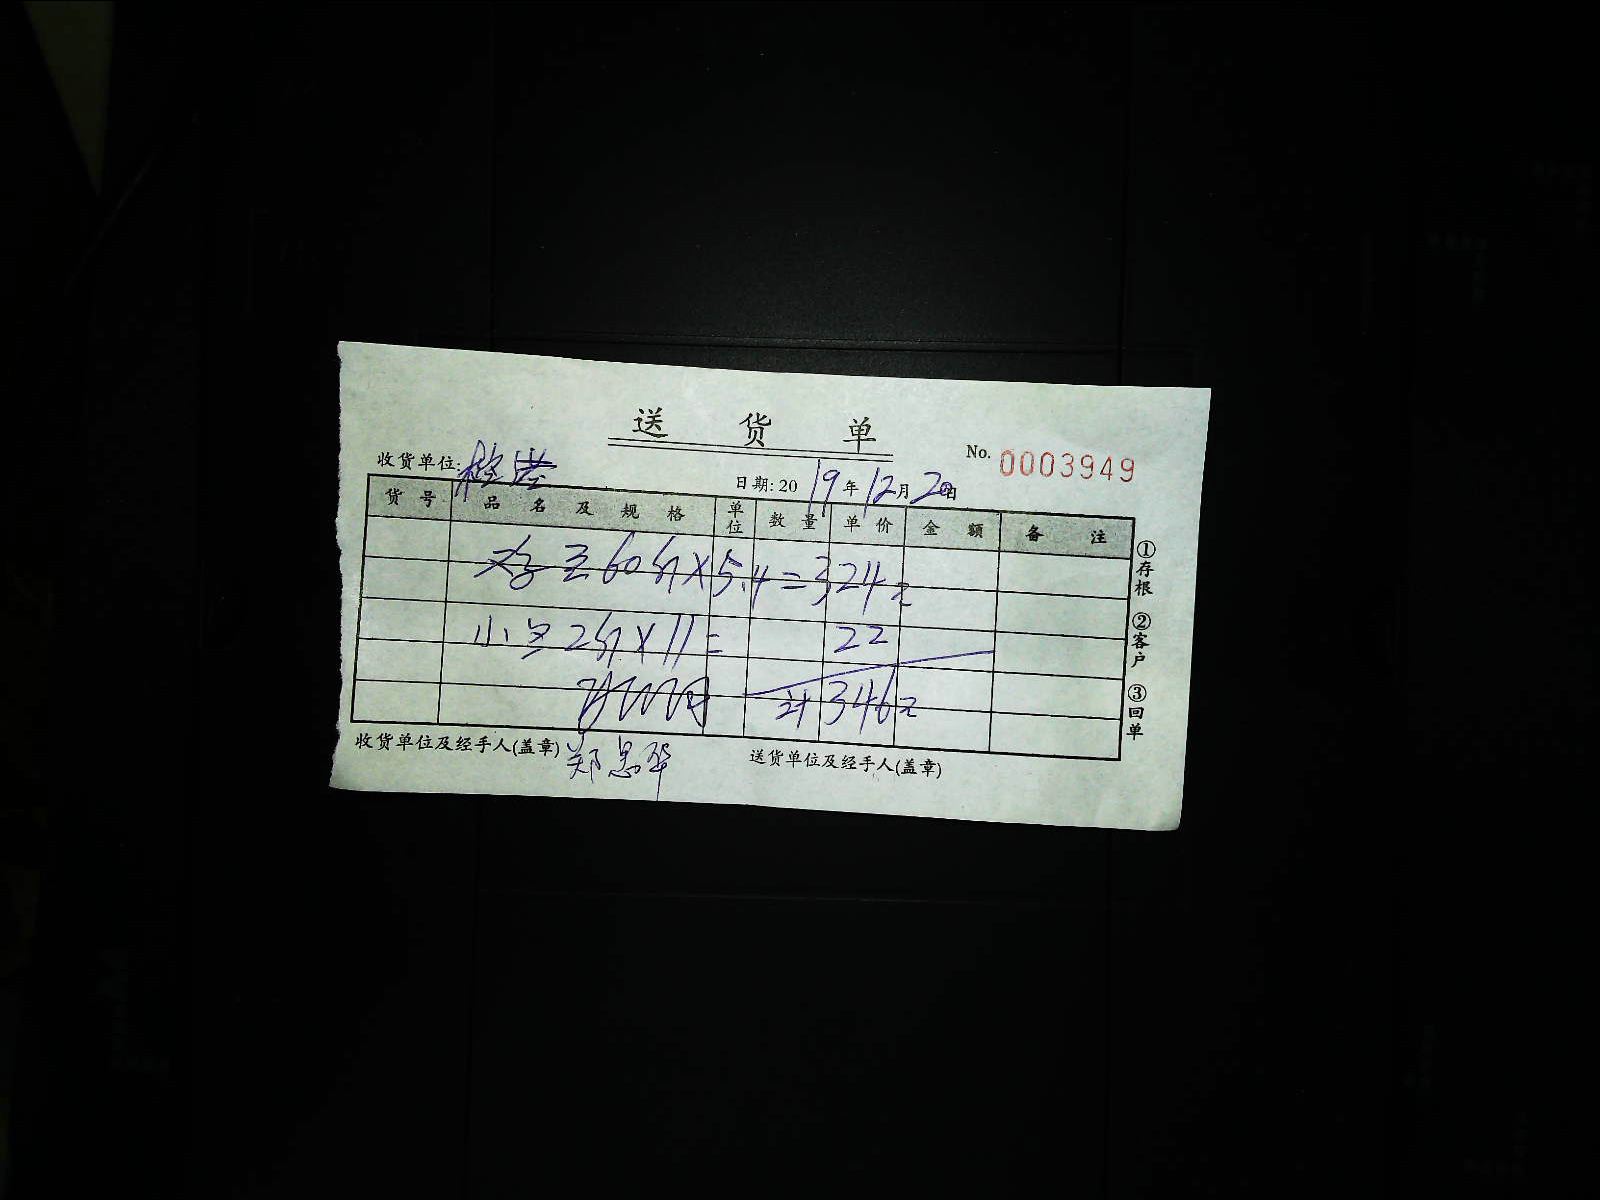 送货单
No. 0003949
收货单位:
日期:2019年12月20日
货号 品名及规格 单位 数量 单价 金额 备注
60斤×5.4=324元
小 2斤×11= 22
计346元
收货单位及经手人(盖章) 郑思华 送货单位及经手人(盖章)
①存根 ②客户 ③回单